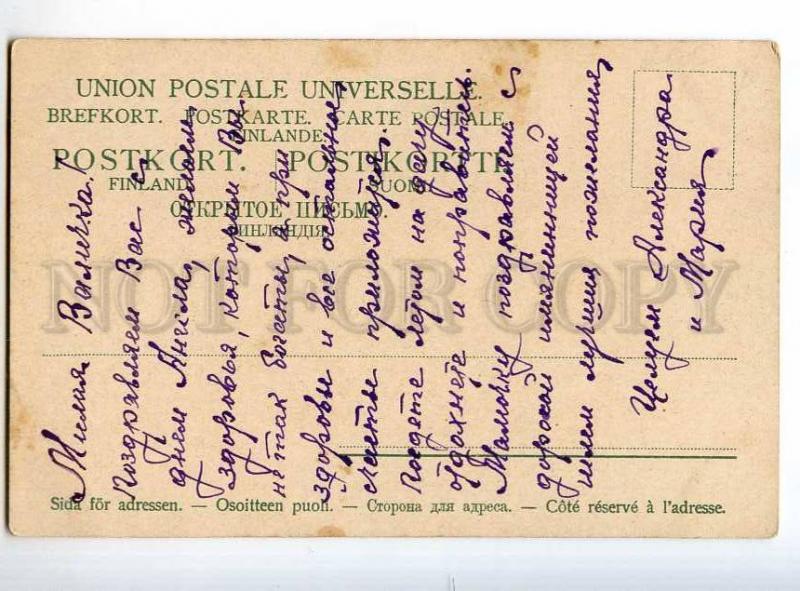 UNION POSTALE UNIVERSELLE.
BREFKORT. POSTKARTE. CARTE POSTALE.
FINLANDE.
POSTKORT. POSTIKORTTI.
FINLAND. SUOMI.
ОТКРЫТОЕ ПИСЬМО.
ФИНЛЯНДІЯ.
Милая Валичка!
Поздравляем Вас с
днем Ангела, желаем
здоровья, которым Вы
не так богаты, а при
здоровьи и все остальное
счастье приложится.
Поедете летом на дачу
отдохнете и поправитесь.
Мамочку поздравляем с
дорогой имянинницей
шлем лучшия пожелания
Целуем Александра
и Мария
NOT FOR COPY
Sida för adressen. — Osoitteen puoli. — Сторона для адреса. — Côté réservé à l'adresse.